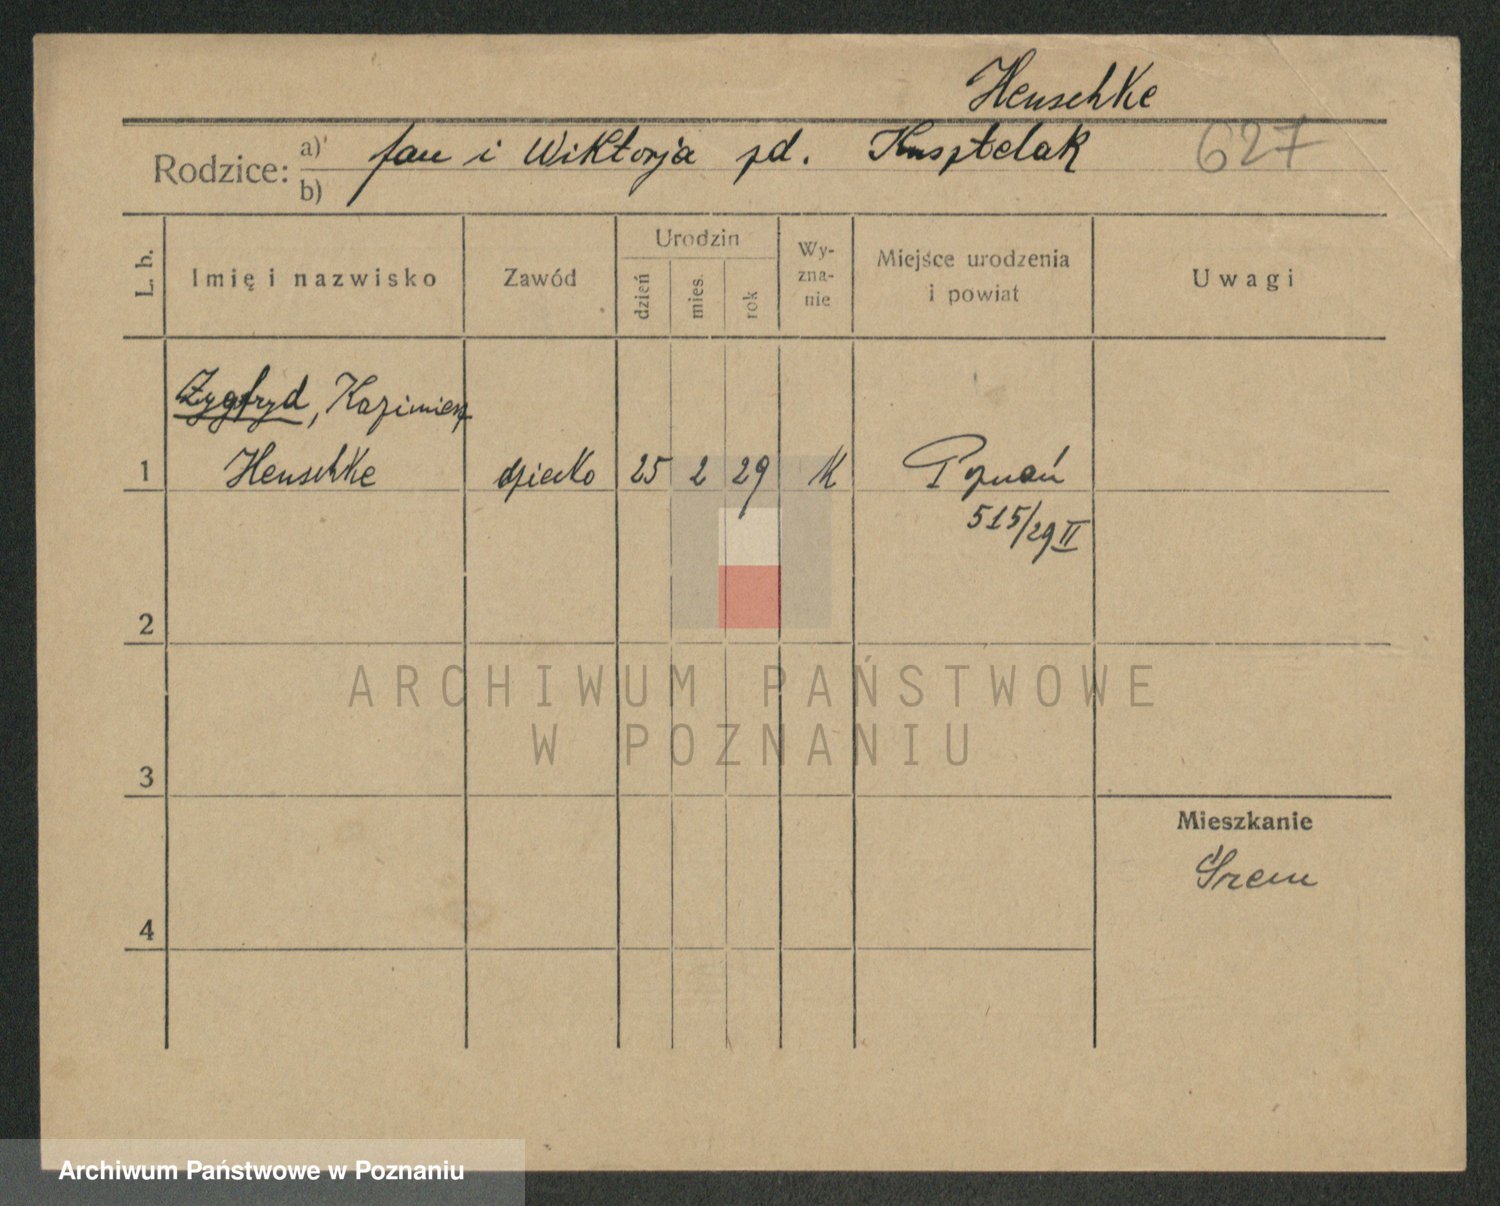 Henschke
Rodzice: a) Jan i Wiktorja zd. 627
b)
L. b. Imię i nazwisko Zawód Urodzin dzień mies. rok Wy-zna-nie Miejsce urodzenia i powiat Uwagi
Zygfryd, Kazimierz
1 Henschke dziecko 25 2 29 K Poznań
515/29 II
2
ARCHIWUM PAŃSTWOWE
W POZNANIU
3
Mieszkanie
Śrem
4
Archiwum Państwowe w Poznaniu